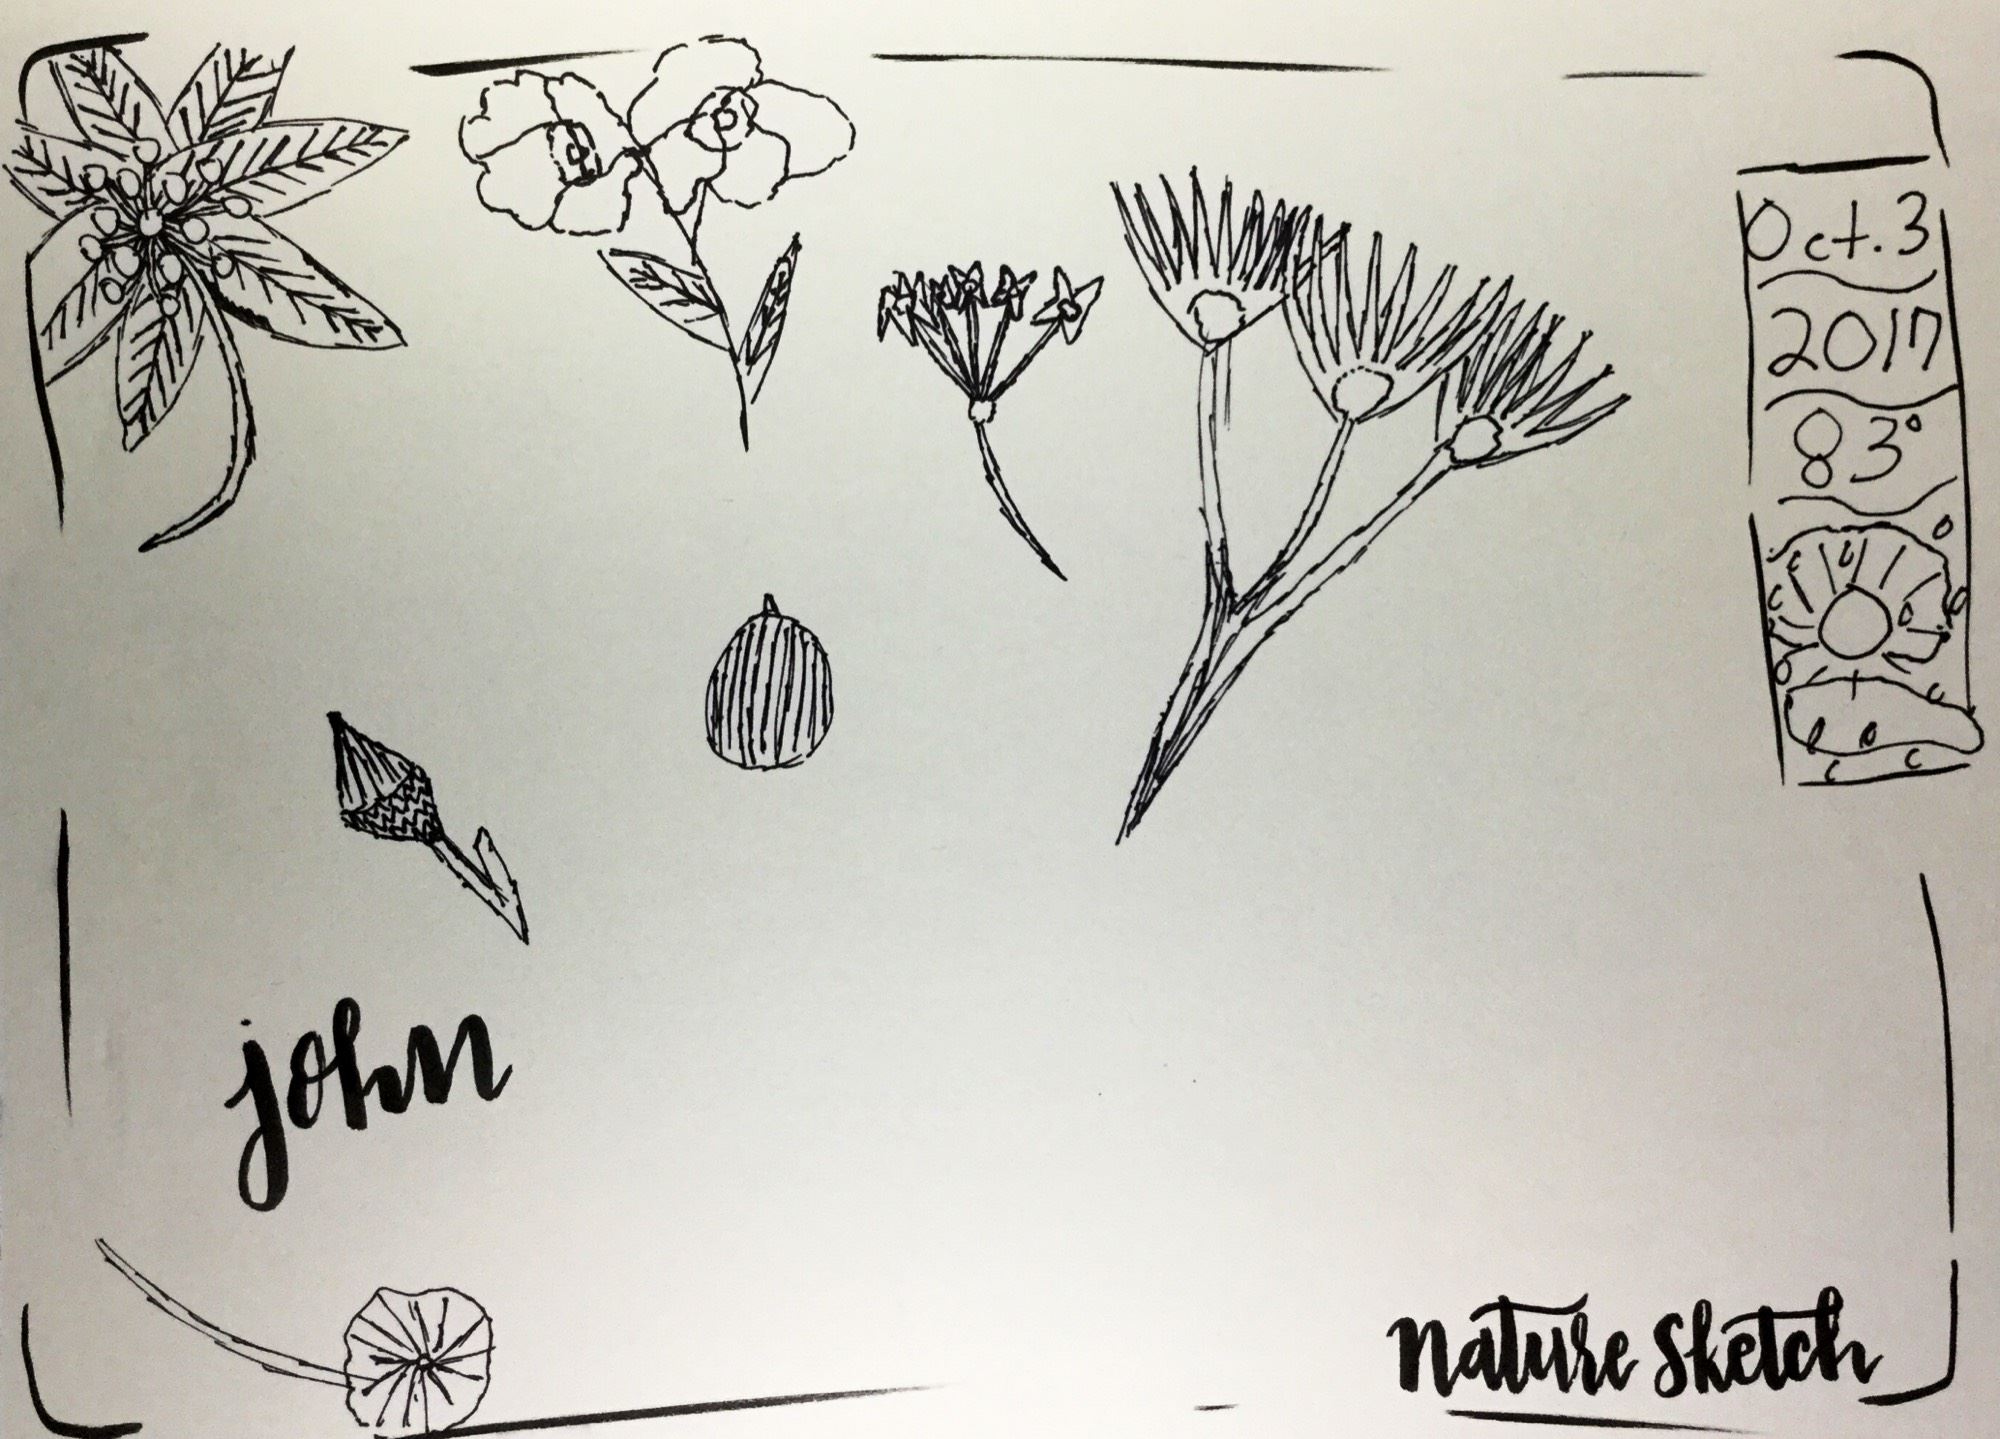 Oct. 3
2017
83°
john
nature sketch